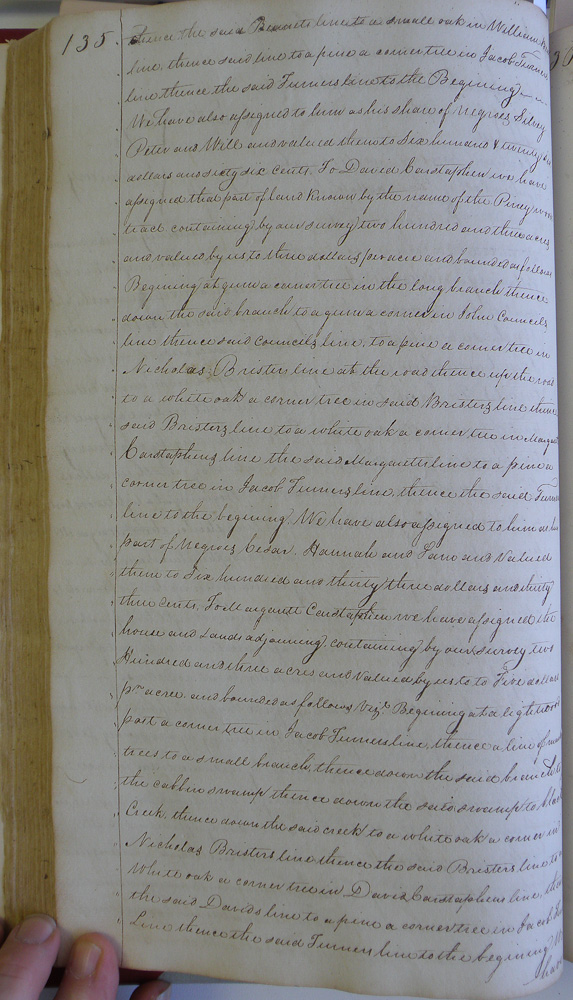 135.
thence the said Bennetts line to a small oak in William
line, thence said line to a pine a corner tree in Jacob Turners
line thence the said Turners line to the Begining
We have also assigned to him as his share of Negroes Silvey
Peter and Will and valued them to Six hundred & twenty
dollars and sixty six cents. To David Carstaphen we have
assigned that part of land known by the name of the Piney woods
tract containing by our survey two hundred and three acres
and valued by us to three dollars per acre and bounded as follows
Begining at a gum a corner tree in the long branch thence
down the said branch to a gum a corner in John Councils
line thence said Councils line, to a pine a corner tree in
Nicholas Bristers line at the road thence up the road
to a white oak a corner tree in said Bristers line thence
said Bristers line to a white oak a corner tree in Margarett
Carstaphens line the said Margaretts line to a pine a
corner tree in Jacob Turners line, thence the said Turners
line to the begining. We have also assigned to him as his
part of Negroes Cesar, Hannah and and Valued
them to Six hundred and thirty three dollars and thirty
three cents. To Margarett Carstaphen we have assigned the
house and Lands adjoining, containing by our survey two
Hundred and three acres and Valued by us to to Five dollars
pr acre and bounded as follows Vizt. Begining at a lightwood
post a corner tree in Jacob Turners line, thence a line of
trees to a small branch, thence down the said branch to
the cabbin swamp thence down the said swamp to
Creek, thence down the said creek to a white oak a corner in
Nicholas Bristers line thence the said Bristers line to a
White oak a corner tree in David Carstaphens line, thence
the said Davids line to a pine a corner tree in Jacob
Line thence the said Turners line to the begining We
have